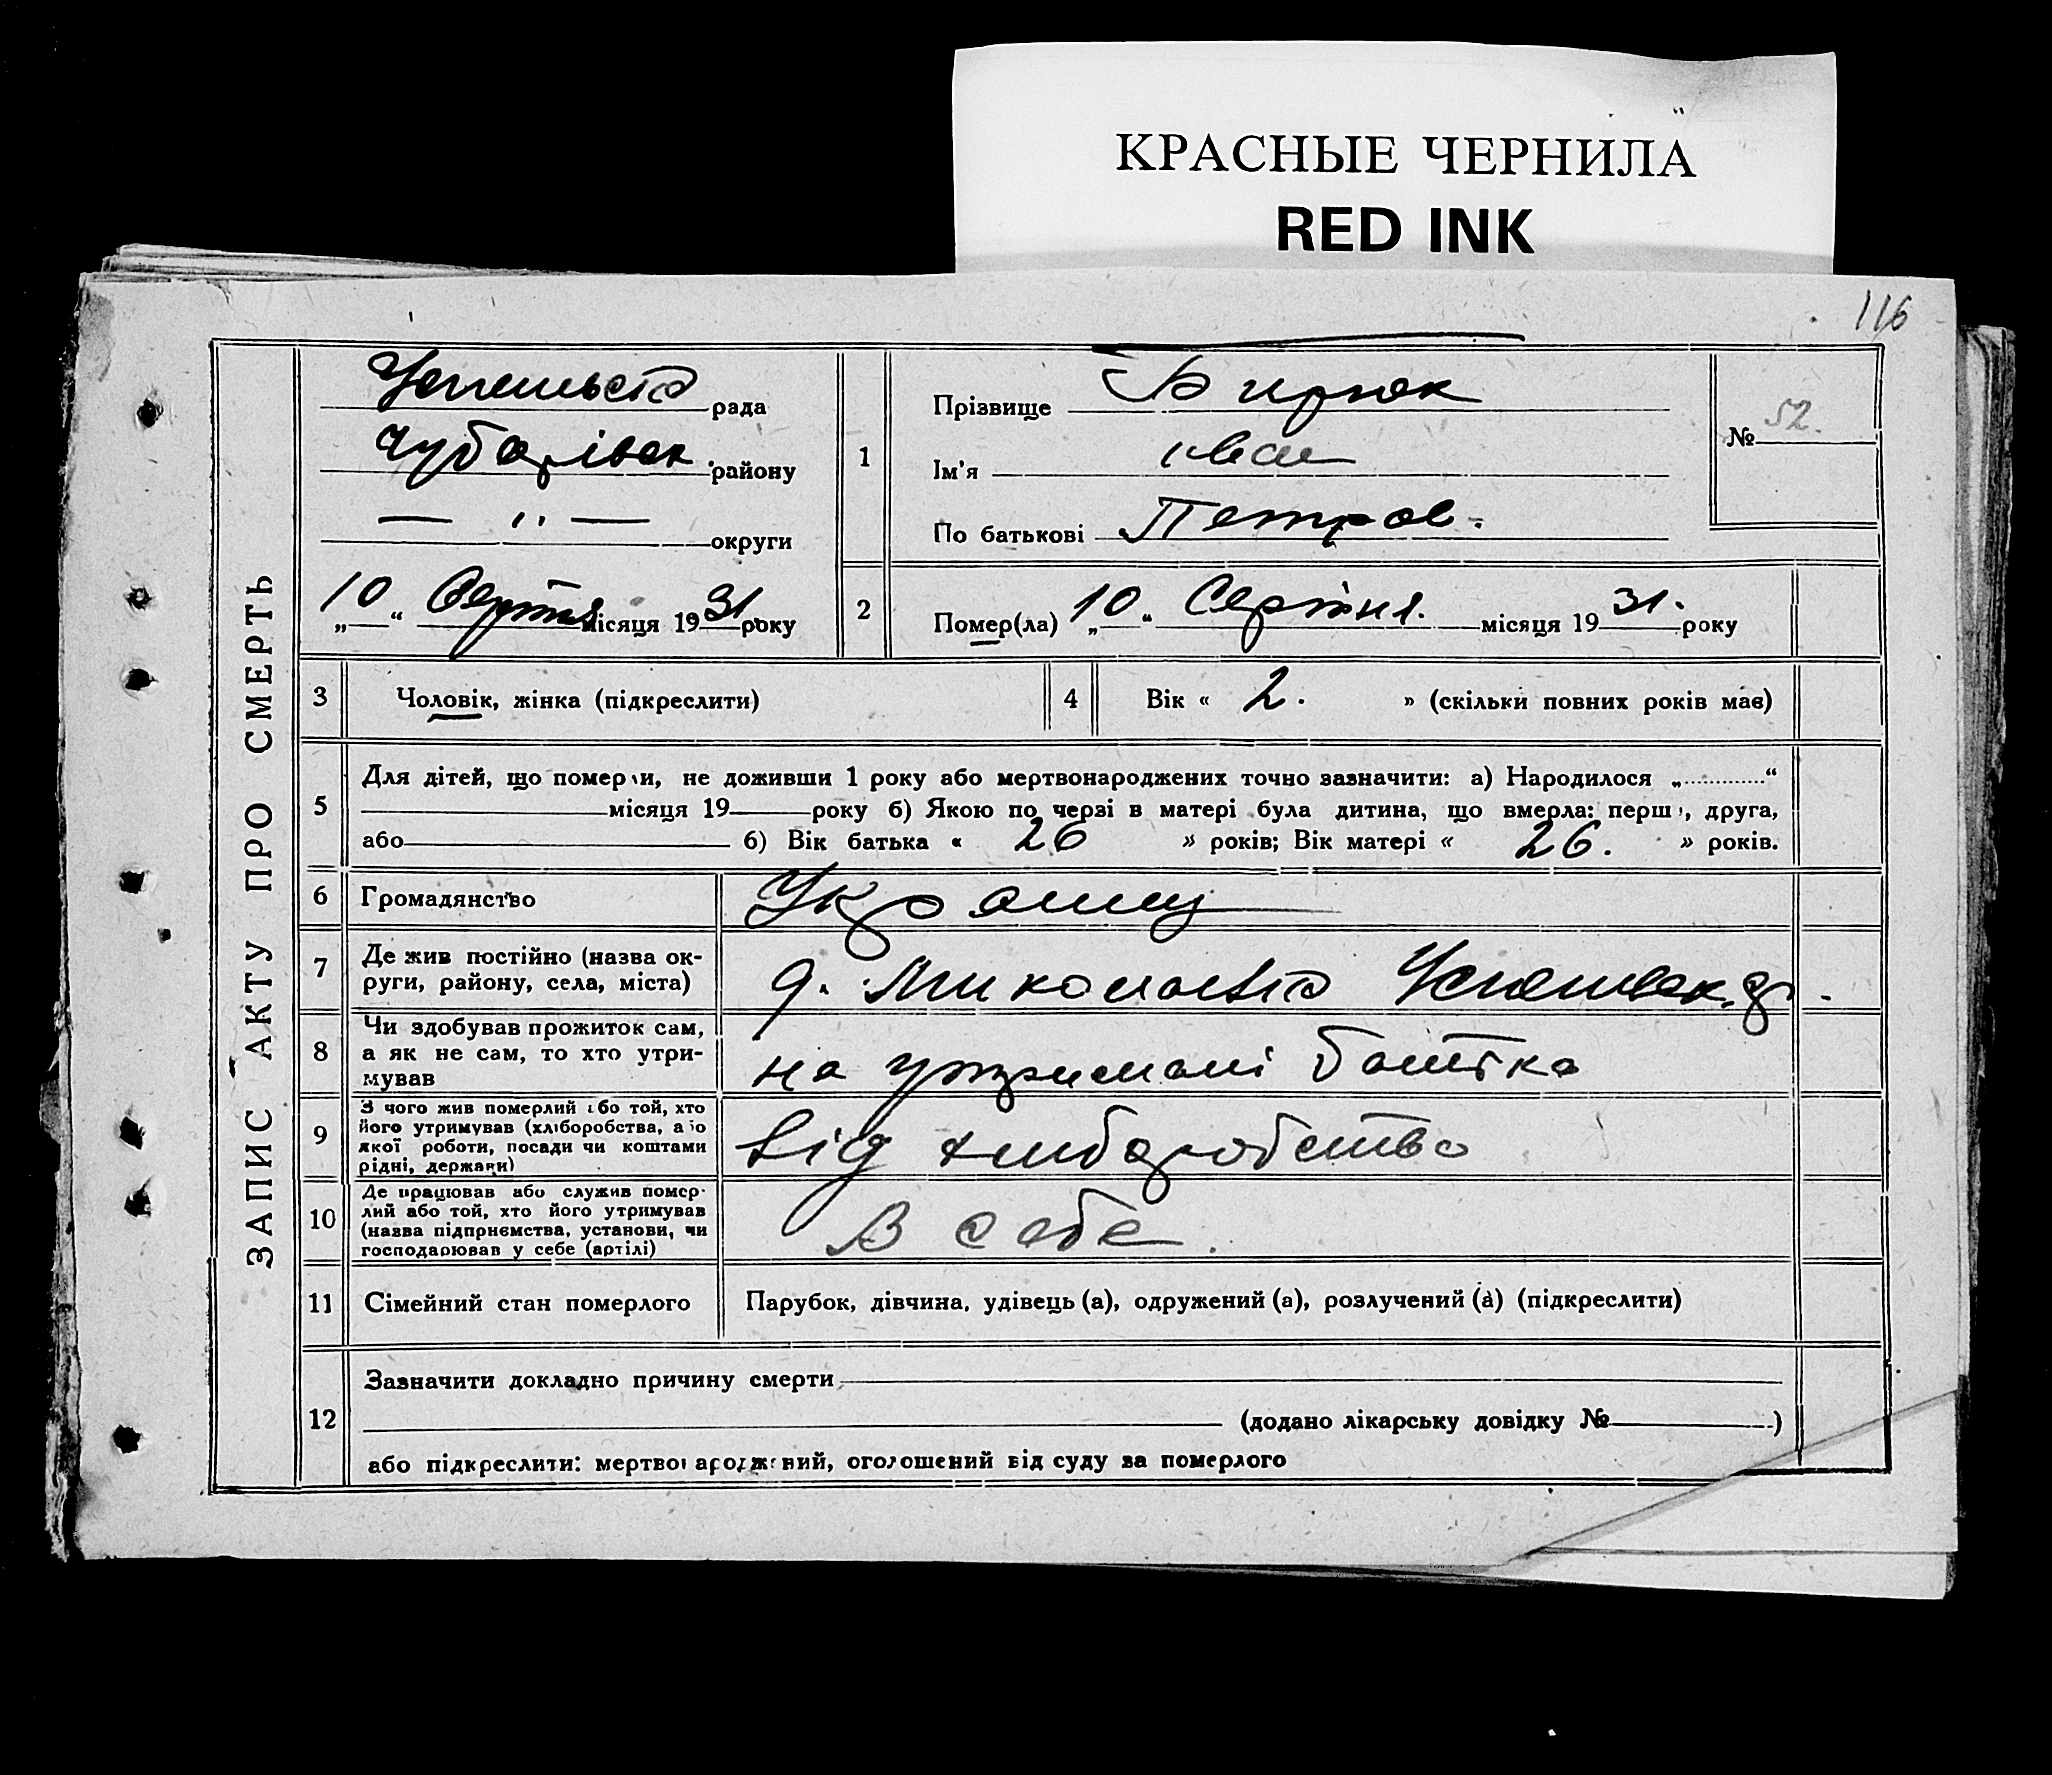 КРАСНЫЕ ЧЕРНИЛА
RED INK
116
ЗАПИС АКТУ ПРО СМЕРТЬ
рада
Чубарівск району
— " — округи
„10“ Серпня місяця 1931 року
1
Прізвище Бирюк
Ім'я Иван
По батькові Петров.
№ 52.
2
Помер(ла) „10“ Серпня. місяця 1931. року
3 Чоловік, жінка (підкреслити)
4 Вік « 2. » (скільки повних років має)
5
Для дітей, що померли, не доживши 1 року або мертвонароджених точно зазначити: а) Народилося „ “
місяця 19 року б) Якою по черзі в матері була дитина, що вмерла: перша, друга,
або б) Вік батька « 26 » років; Вік матері « 26. » років.
6 Громадянство
7 Де жив постійно (назва ок-
руги, району, села, міста)
8 Чи здобував прожиток сам,
а як не сам, то хто утри-
мував
на утримані батька
9 З чого жив померлий або той, хто
його утримував (хліборобства, або
якої роботи, посади чи коштами
рідні, держави)
від хлиборобства
10 Де працював або служив помер-
лий або той, хто його утримував
(назва підприємства, установи, чи
господарював у себе (артілі)
В себе.
11 Сімейний стан померлого
Парубок, дівчина, удівець (а), одружений (а), розлучений (а) (підкреслити)
12
Зазначити докладно причину смерти
(додано лікарську довідку № )
або підкреслити: мертвонароджений, оголошений від суду за померлого